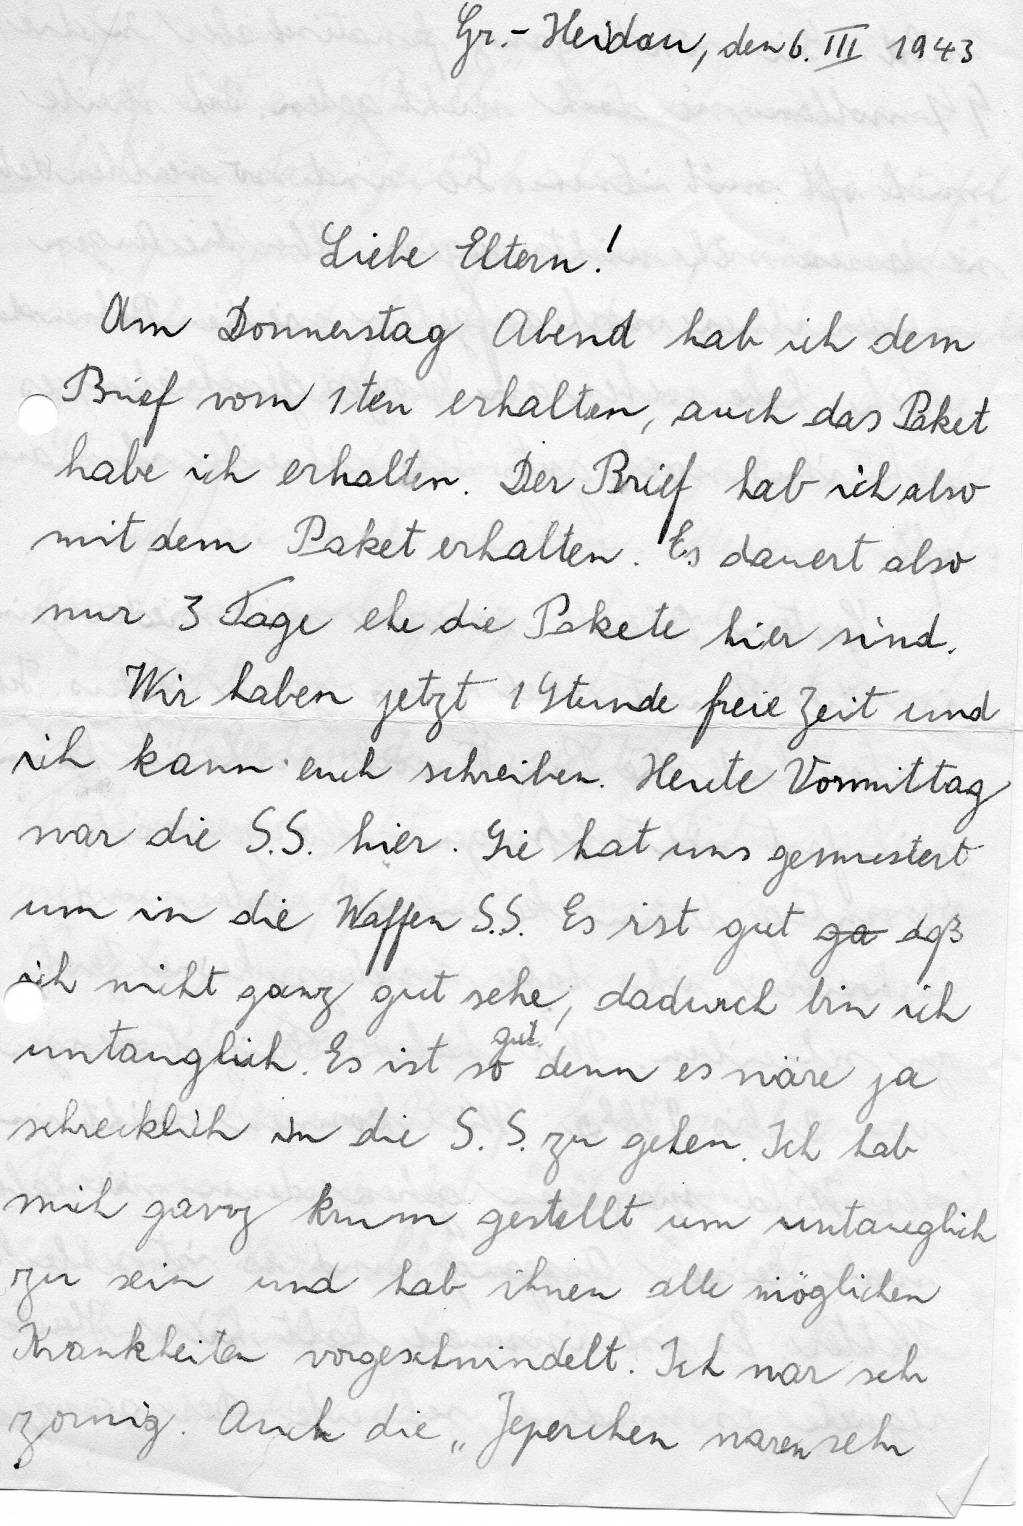 Gr.- Heidau, den 6. III 1943
Liebe Eltern!
Am Donnerstag Abend hab ich dem
Brief vom 1ten erhalten, auch das Paket
habe ich erhalten. Der Brief hab ich also
mit dem Paket erhalten. Es dauert also
nur 3 Tage ehe die Pakete hier sind.
Wir haben jetzt 1 Stunde freie Zeit und
ich kann euch schreiben. Heute Vormittag
war die S.S. hier. Sie hat uns gemustert
um in die Waffen S.S. Es ist gut ga daß
ich nicht ganz gut sehe, dadurch bin ich
untauglich. Es ist so gut. denn es wäre ja
schrecklich in die S.S. zu gehen. Ich hab
mich ganz krum gestellt um untauglich
zu sein und hab ihnen alle möglichen
Krankheiten vorgeschwindelt. Ich war sehr
zornig. Auch die „Jeperchen waren sehr